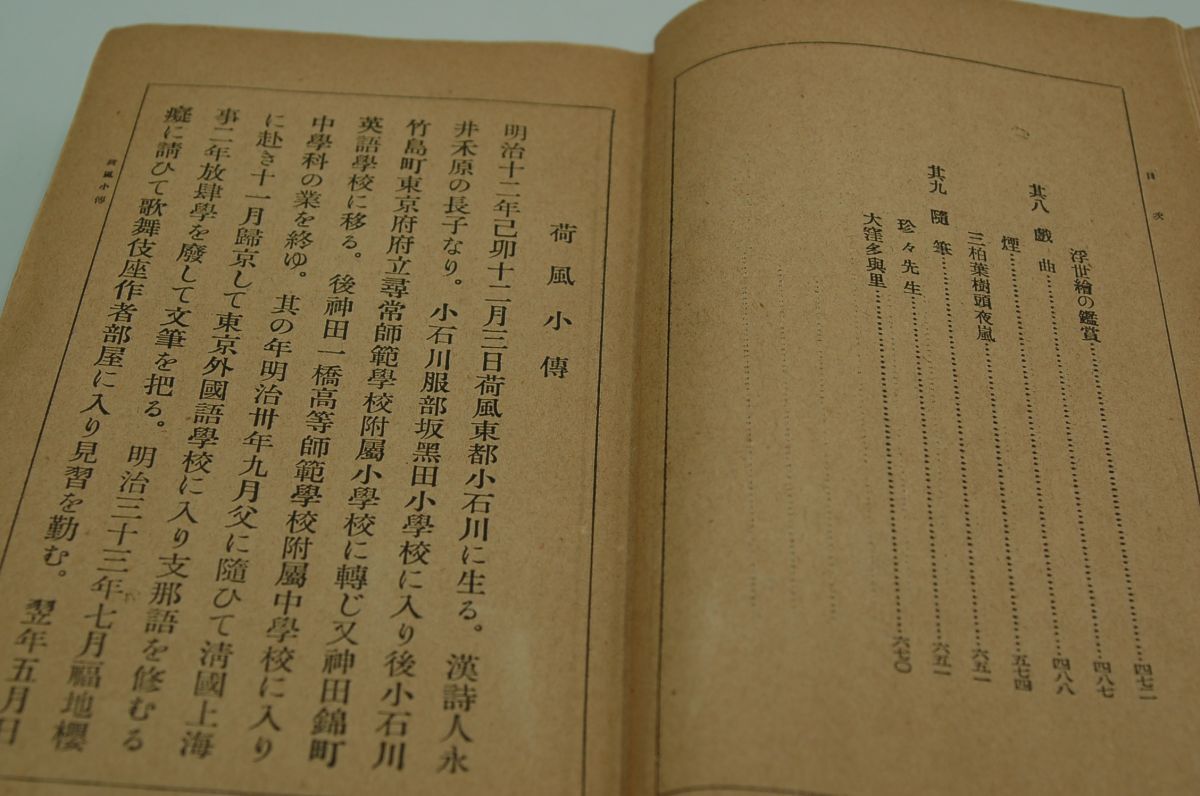 目次
浮世繪の鑑賞……四七二
其八 戲曲……四八七
煙……四八八
三柏葉樹頭夜嵐……五七四
其九 隨筆……六五一
珍々先生……六五一
大窪多與里……六七〇
荷風小傳
明治十二年己卯十二月三日荷風東都小石川に生る。漢詩人永
井禾原の長子なり。小石川服部坂黑田小學校に入り後小石川
竹島町東京府府立尋常師範學校附屬小學校に轉じ又神田錦町
英語學校に移る。後神田一橋高等師範學校附屬中學校に入り
中學科の業を終ゆ。其の年明治卅年九月父に隨ひて淸國上海
に赴き十一月歸京して東京外國語學校に入り支那語を修むる
事二年放肆學を廢して文筆を把る。明治三十三年七月福地櫻
癡に請ひて歌舞伎座作者部屋に入り見習を勤む。翌年五月日
荷風小傳